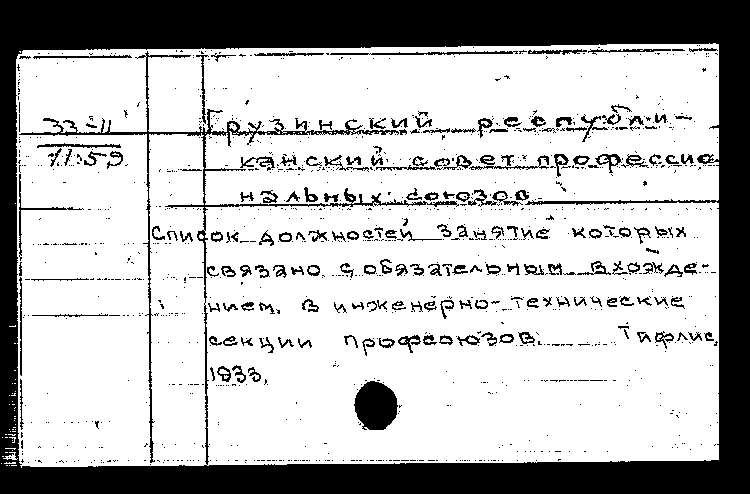 33-11
11.59
Грузинский республи-
канский совет профессио
нальных союзов
Список должностей занятие которых
связано с обязательным вхожде-
нием в инженерно-технические
секции профсоюзов. Тифлис,
1933.